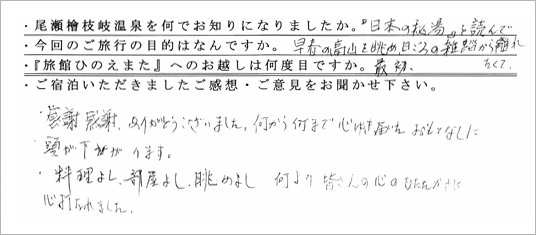 ・尾瀬檜枝岐温泉を何でお知りになりましたか。『日本の秘湯』を読んで
・今回のご旅行の目的はなんですか。 早春の高山を眺め、日ごろの雑踏から離れ
たくて、
・『旅館ひのえまた』へのお越しは何度目ですか。 最初、
・ご宿泊いただきましたご感想・ご意見をお聞かせ下さい。
・感謝感謝、ありがとうございました。何から何まで心ゆき届いたおもてなしに
頭が下がります。
・料理よし、部屋よし、眺めよし 何より皆さんの心のあたたかさに
心打たれました。